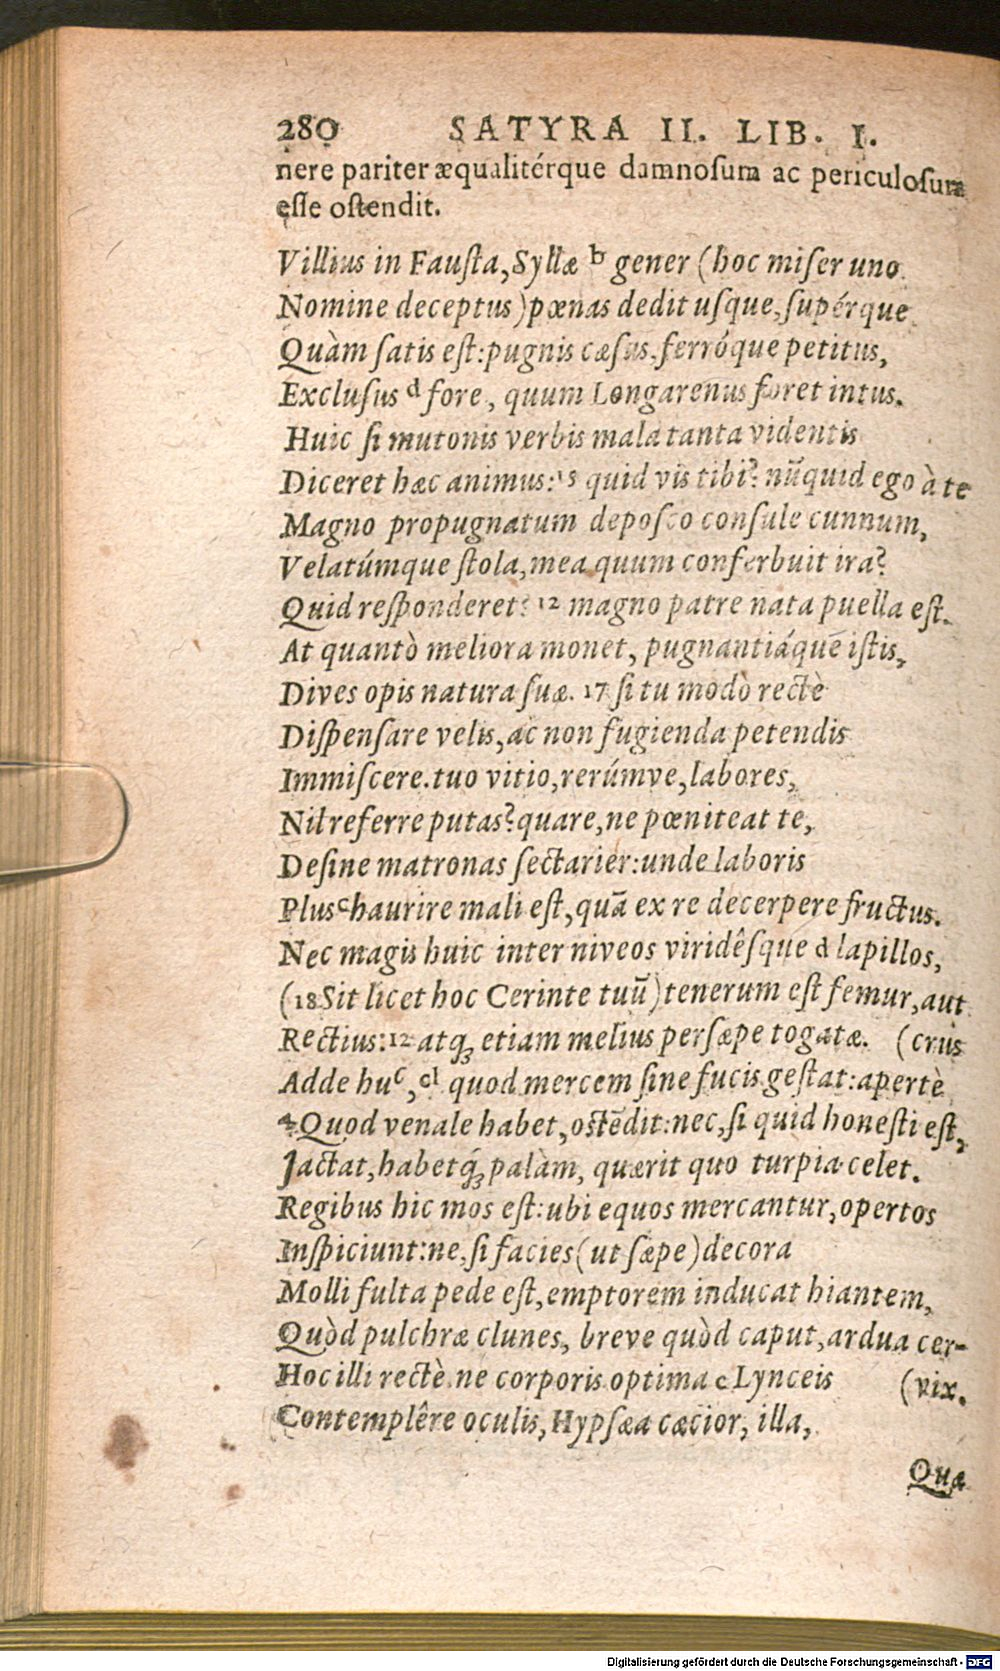 280 SATYRA II. LIB. I.
nere pariter æqualitérque damnoſum ac periculoſum
eſſe oſtendit.
Villius in Fauſta, Syllæ b gener (hoc miſer uno
Nomine deceptus) pœnas dedit uſque, ſupérque
Quàm ſatis eſt: pugnis cæſus, ferróque petitus,
Excluſus d fore, quum Longarenus foret intus.
Huic ſi mutonis verbis mala tanta videntis
Diceret hæc animus: 15 quid vis tibi? nūquid ego à te
Magno prognatum depoſco conſule cunnum,
Velatúmque ſtola, mea quum conferbuit ira?
Quid reſponderet? 12 magno patre nata puella eſt.
At quantò meliora monet, pugnantiáquē iſtis,
Dives opis natura ſuæ. 17 ſi tu modò rectè
Diſpenſare velis, ac non fugienda petendis
Immiſcere. tuo vitio, rerúmve, labores,
Nil referre putas? quare, ne pœniteat te,
Deſine matronas ſectarier: unde laboris
Plus c haurire mali eſt, quā ex re decerpere fructus.
Nec magis huic inter niveos viridêſque d lapillos,
(18 Sit licet hoc Cerinte tuū) tenerum eſt femur, aut
Rectius: 12 atq; etiam melius perſæpe togatæ. (crus
Adde huc, cl quod mercem ſine fucis geſtat: apertè
4 Quod venale habet, oſtēdit: nec, ſi quid honeſti eſt,
Jactat, habetq́; palàm, quærit quo turpia celet.
Regibus hic mos eſt: ubi equos mercantur, opertos
Inſpiciunt: ne, ſi facies (ut ſæpe) decora
Molli fulta pede eſt, emptorem inducat hiantem,
Quòd pulchræ clunes, breve quòd caput, ardua cer-
Hoc illi rectè. ne corporis optima c Lynceis (vix.
Contemplêre oculis, Hypſæa cæcior, illa,
Quæ
Digitalisierung gefördert durch die Deutsche Forschungsgemeinschaft - DFG